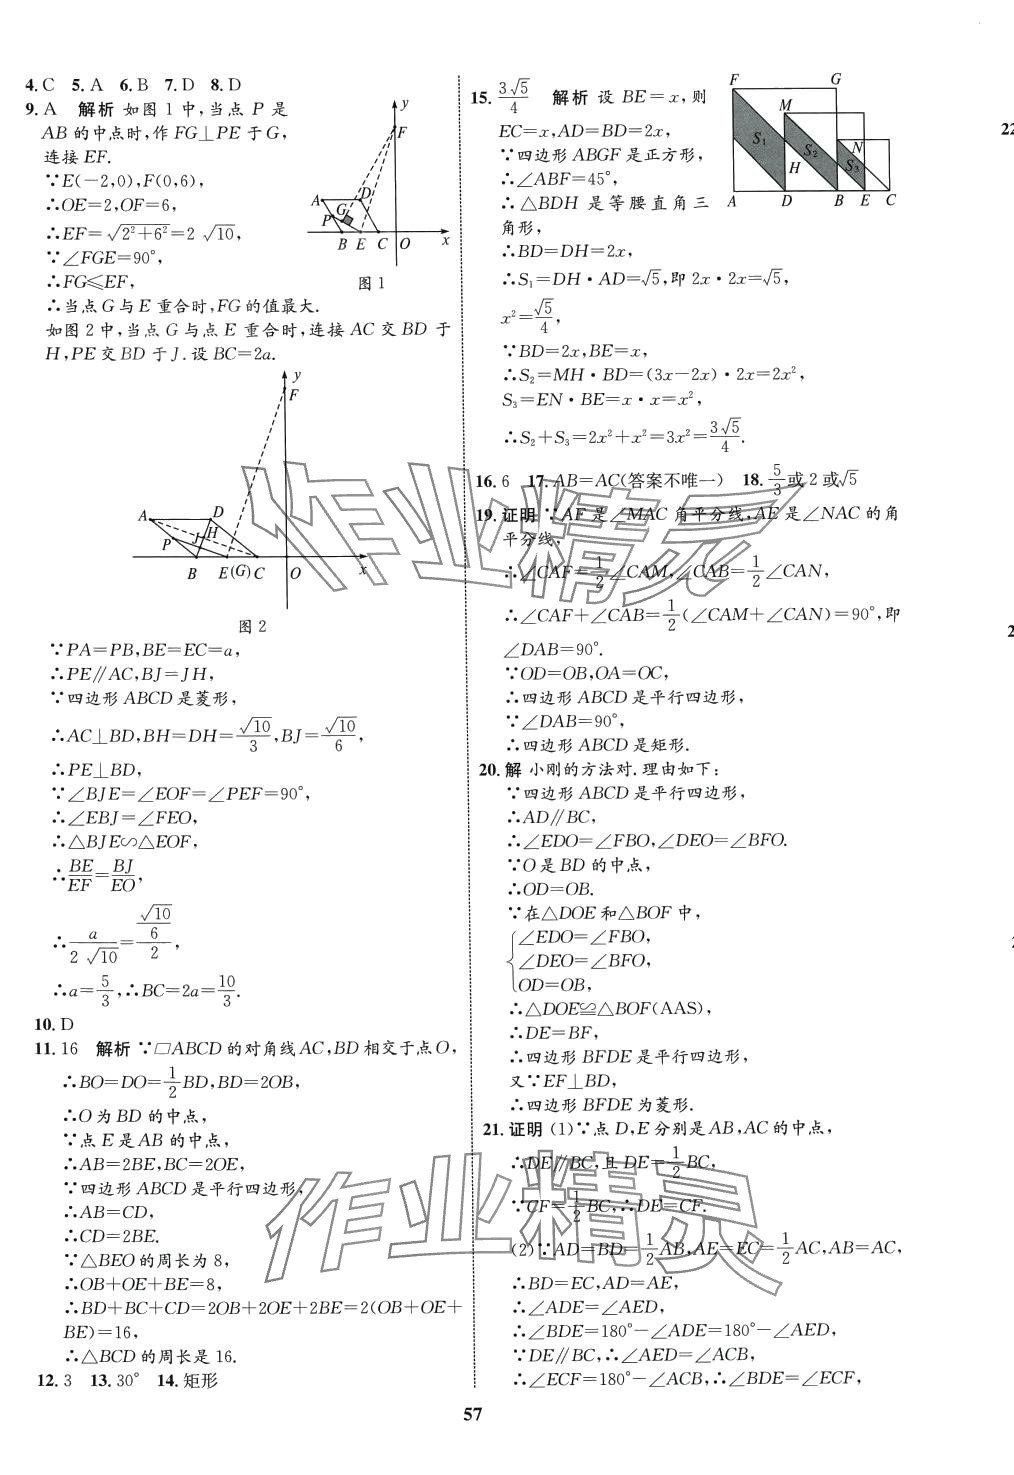 4. C  5. A  6. B  7. D  8. D
9. A  解析  如图 1 中,当点 P 是
AB 的中点时,作 FG⊥PE 于 G,
连接 EF.
∵E(−2,0),F(0,6),
∴OE=2,OF=6,
∴EF=√(2²+6²)=2√10,
∵∠FGE=90°,
∴FG≤EF,
∴当点 G 与 E 重合时,FG 的值最大.
y
F
A
D
G
P
B E C O x
图 1
如图 2 中,当点 G 与点 E 重合时,连接 AC 交 BD 于
H,PE 交 BD 于 J.设 BC=2a.
y
F
A
D
H
J
P
B E(G) C O x
图 2
∵PA=PB,BE=EC=a,
∴PE∥AC,BJ=JH,
∵四边形 ABCD 是菱形,
∴AC⊥BD,BH=DH=√10/3,BJ=√10/6,
∴PE⊥BD,
∵∠BJE=∠EOF=∠PEF=90°,
∴∠EBJ=∠FEO,
∴△BJE∽△EOF,
∴BE/EF=BJ/EO,
∴a/(2√10)=(√10/6)/2,
∴a=5/3,∴BC=2a=10/3.
10. D
11. 16  解析  ∵□ABCD 的对角线 AC,BD 相交于点 O,
∴BO=DO=1/2 BD,BD=2OB,
∴O 为 BD 的中点,
∵点 E 是 AB 的中点,
∴AB=2BE,BC=2OE,
∵四边形 ABCD 是平行四边形,
∴AB=CD,
∴CD=2BE.
∵△BEO 的周长为 8,
∴OB+OE+BE=8,
∴BD+BC+CD=2OB+2OE+2BE=2(OB+OE+
BE)=16,
∴△BCD 的周长是 16.
12. 3  13. 30°  14. 矩形
15. 3√5/4  解析  设 BE=x,则
EC=x,AD=BD=2x,
∵四边形 ABGF 是正方形,
∴∠ABF=45°,
∴△BDH 是等腰直角三
角形,
∴BD=DH=2x,
∴S₁=DH·AD=√5,即 2x·2x=√5,
x²=√5/4,
F G
M
N
S₁
S₂
S₃
H
A D B E C
∵BD=2x,BE=x,
∴S₂=MH·BD=(3x−2x)·2x=2x²,
S₃=EN·BE=x·x=x²,
∴S₂+S₃=2x²+x²=3x²=3√5/4.
16. 6  17. AB=AC(答案不唯一)  18. 5/3或 2 或√5
19. 证明  ∵AF 是∠MAC 角平分线,AE 是∠NAC 的角
平分线,
∴∠CAF=1/2∠CAM,∠CAB=1/2∠CAN,
∴∠CAF+∠CAB=1/2(∠CAM+∠CAN)=90°,即
∠DAB=90°.
∵OD=OB,OA=OC,
∴四边形 ABCD 是平行四边形,
∵∠DAB=90°,
∴四边形 ABCD 是矩形.
20. 解  小刚的方法对.理由如下:
∵四边形 ABCD 是平行四边形,
∴AD∥BC,
∴∠EDO=∠FBO,∠DEO=∠BFO.
∵O 是 BD 的中点,
∴OD=OB.
∵在△DOE 和△BOF 中,
{∠EDO=∠FBO,
∠DEO=∠BFO,
OD=OB,
∴△DOE≌△BOF(AAS),
∴DE=BF,
∴四边形 BFDE 是平行四边形,
又∵EF⊥BD,
∴四边形 BFDE 为菱形.
21. 证明  (1)∵点 D,E 分别是 AB,AC 的中点,
∴DE∥BC,且 DE=1/2 BC,
∵CF=1/2 BC,∴DE=CF.
(2)∵AD=BD=1/2 AB,AE=EC=1/2 AC,AB=AC,
∴BD=EC,AD=AE,
∴∠ADE=∠AED,
∴∠BDE=180°−∠ADE=180°−∠AED,
∵DE∥BC,∴∠AED=∠ACB,
∴∠ECF=180°−∠ACB,∴∠BDE=∠ECF,
作业精灵
作业精灵
57
22
2
2